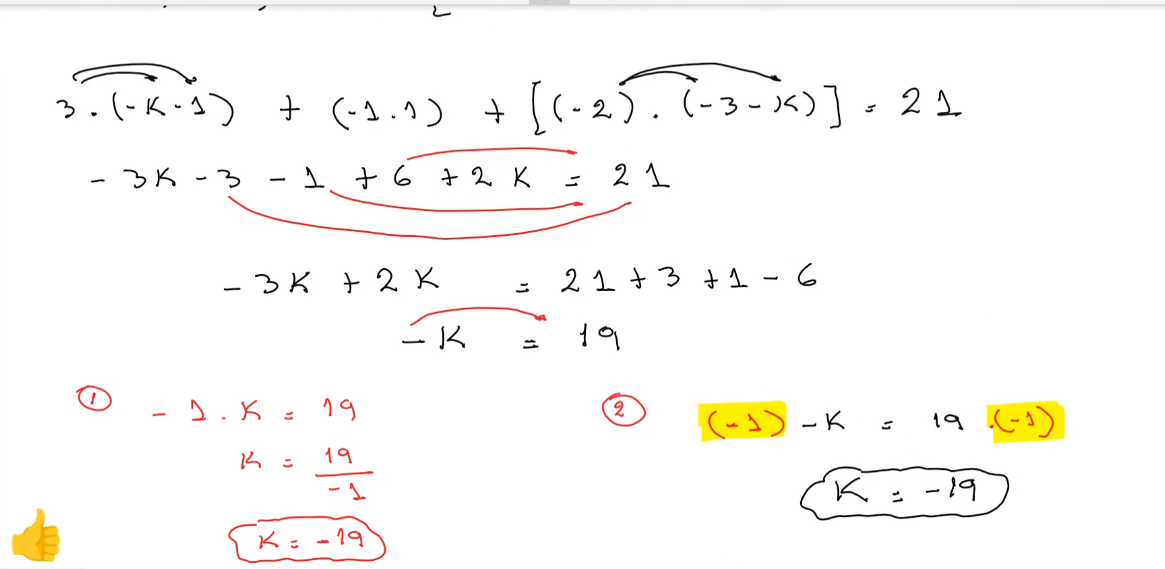 3.(-K-1) + (-1.1) + [(-2).(-3-K)] = 21
-3K-3-1+6+2K = 21
-3K+2K = 21+3+1-6
-K = 19
①
-1.K = 19
K = 19/-1
K = -19
②
(-1)-K = 19.(-1)
K = -19